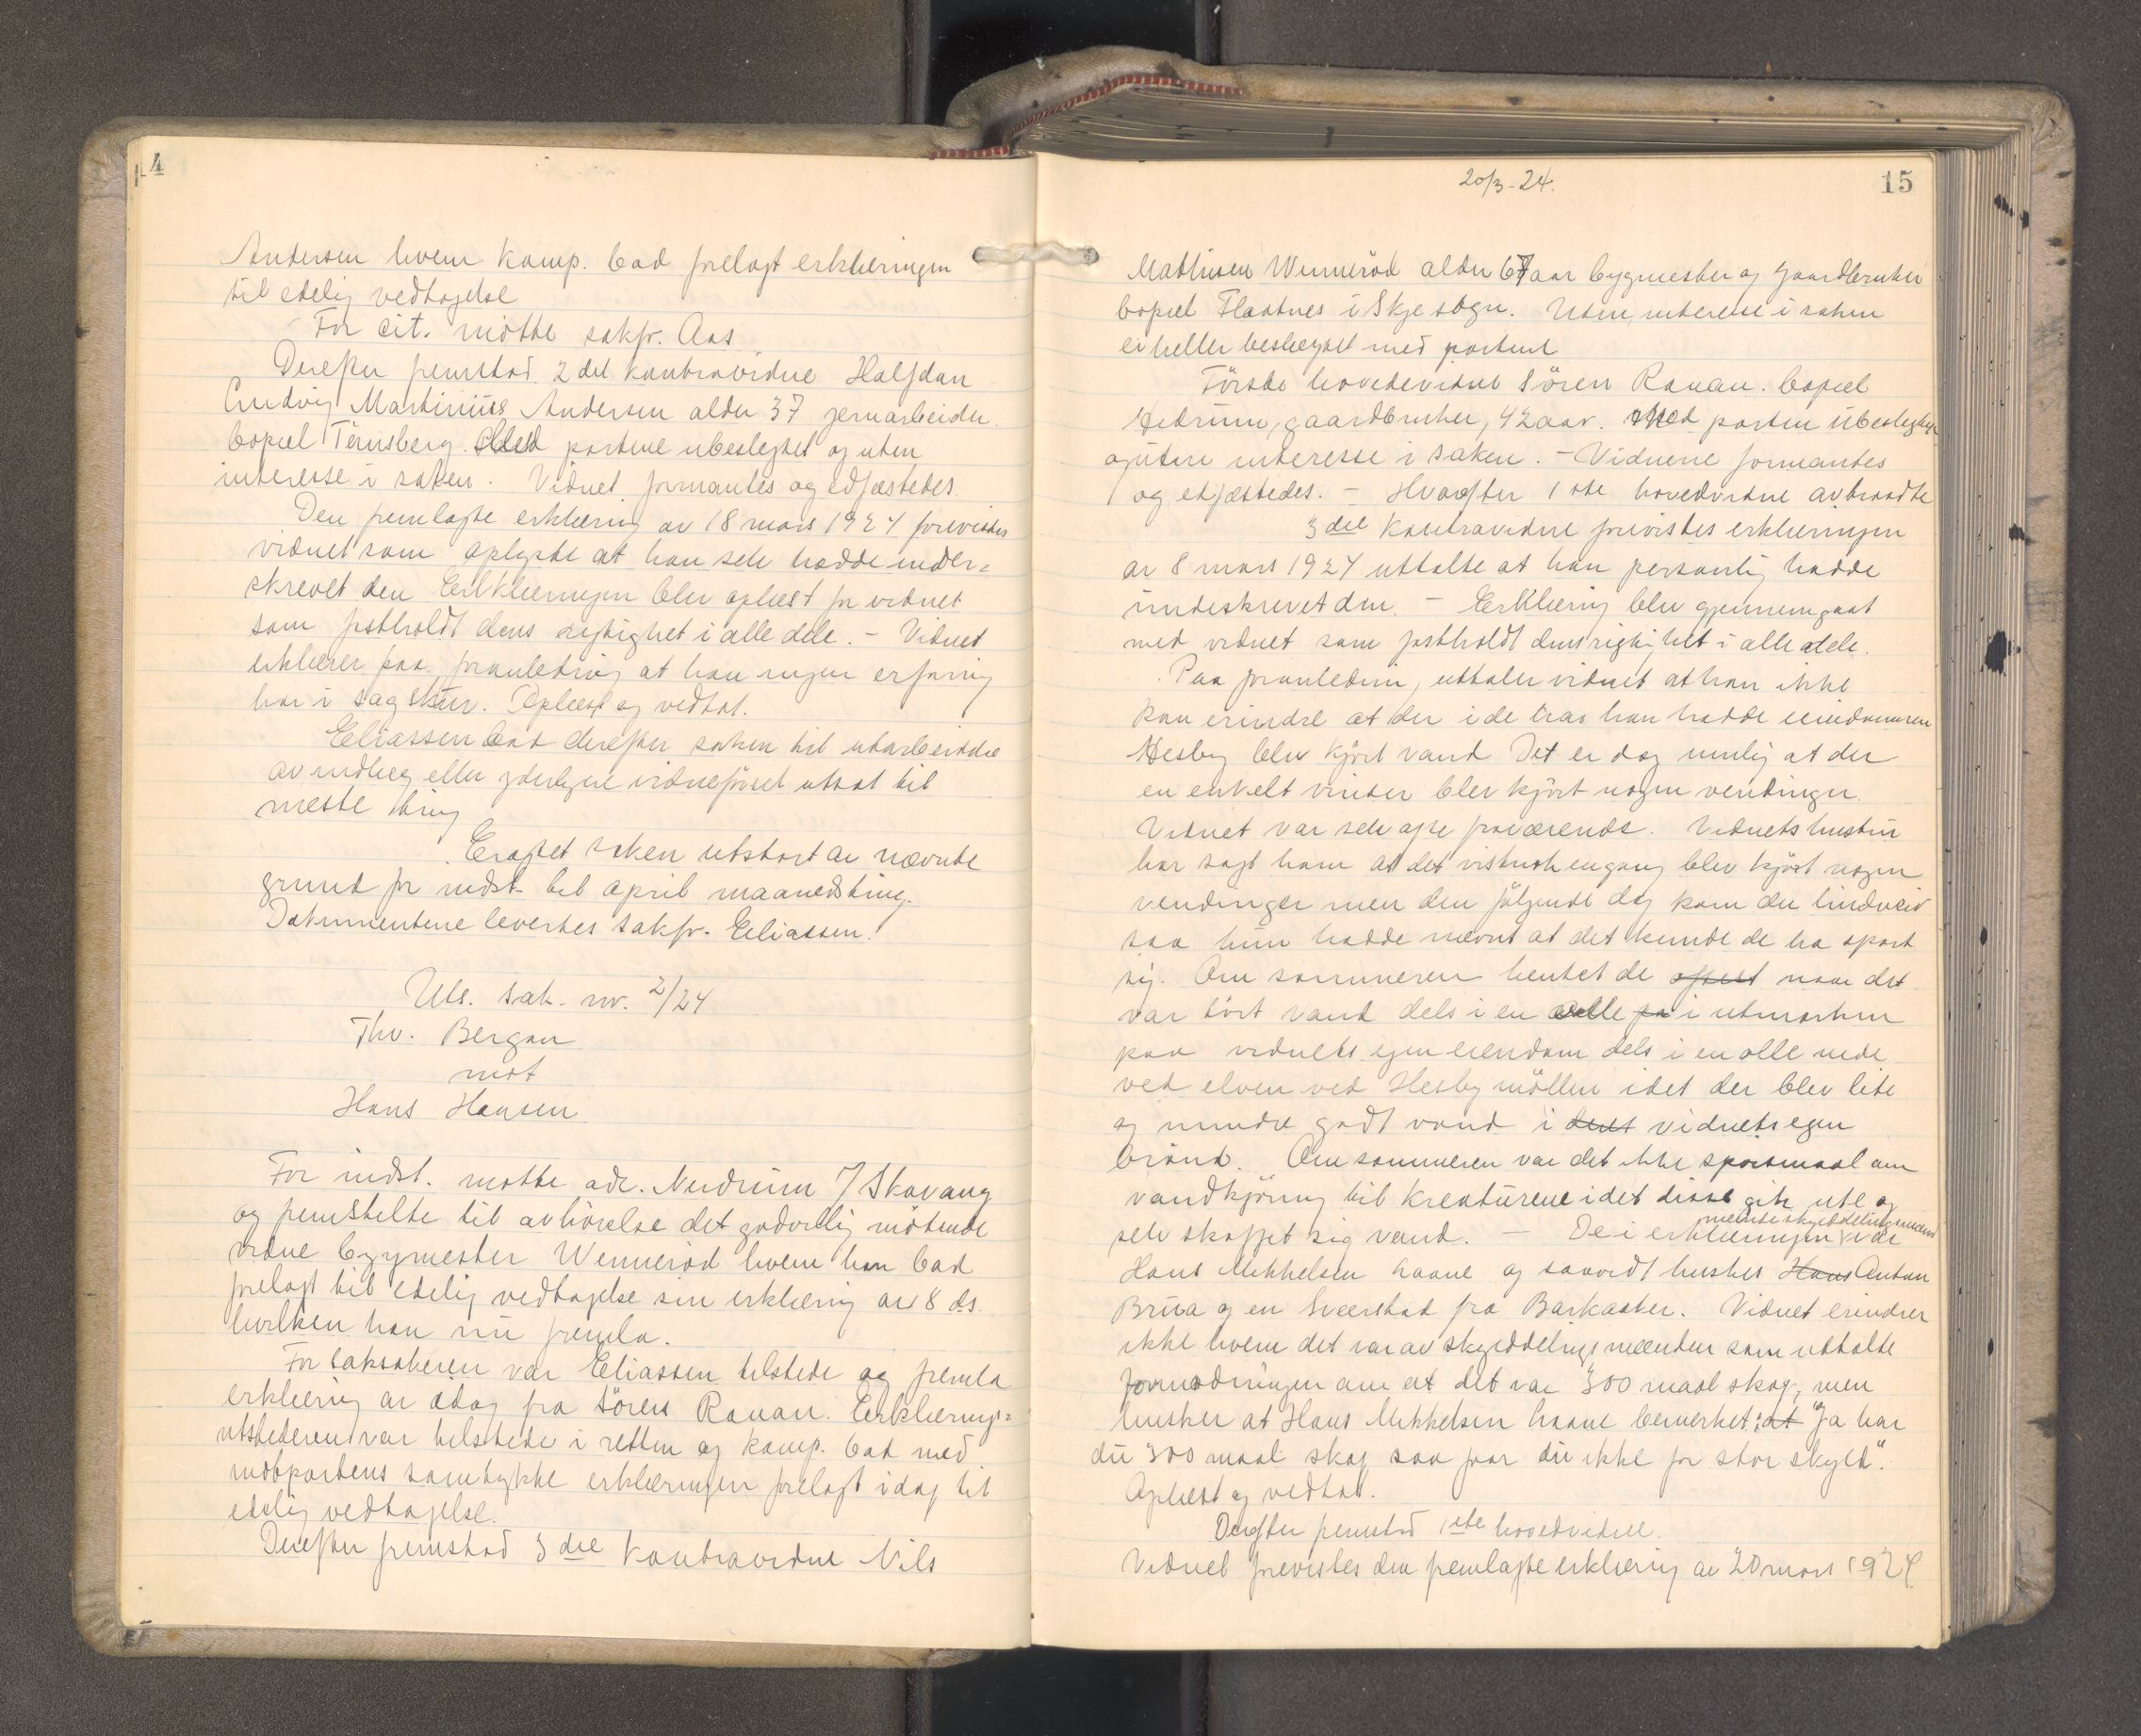 14
Andersen hvem komp. bad forelagt erklæringen
til edelig vedtagelse
For cit. møtte sakfr. Aas
Derefter fremstod 2det kontravidne Halfdan
Ludvig Martinius Andersen alder 37 jernarbeider
bopæl Tønsberg. Med partene ubeslegtet og uten
interesse i saken. Vidnet formantes og edfæstedes.
Den fremlagte erklæring av 18 mars 1924 forevistes
vidnet som oplyste at han selv hadde under-
skrevet den Erklæringen blev oplæst for vidnet
som fastholdt dens rigtighet i alle dele. - Vidnet
erklærer paa foranledning at han ingen erfaring
har i sagskur. Oplæst og vedtat.
Eliassen bad derefter saken til utarbeidelse
av indlæg eller yderligere vidneførsel utsat til
næste ting
Eragtet saken utstaar av nævnte
grund for indst. til april maanedsting.
Dokumentene levertes sakfr. Eliassen.
Uts. sak. nr. 2/24
Thv. Bergan
mot
Hans Hansen
For indst. møtte adv. Nedrum v/ Skavang
og fremstelte til avhørelse det godvillig møtende
vidne bygmester Wennerød hvem han bad
forelagt til edelig vedtagelse sin erklæring av 8 ds.
hvilken han nu fremla.
For saksøkeren var Eliassen tilstede og fremla
erklæring av idag fra Søren Rauan. Erklærings-
utstederen var tilstede i retten og komp. bad med
motpartens samtykke erklæringen forelagt idag til
edelig vedtagelse.
Derefter fremstod 3die kontravidne Nils
20/3-24.
15
Mathisen Wennerød alder 67 aar bygmester og gaardbruker
bopæl Flaatnes i Skje sogn. Uten interesse i saken
ei heller beslegtet med partene
Første hovedvidne Søren Rauan. bopæl
Hedrum, gaardbruker, 42 aar. Med parten ubeslegtet
og uten interesse i saken. - Vidnene formantes
og edfæstedes. - Hvorefter 1ste hovedvidne avtraadte
3die kontravidne forevistes erklæringen
av 8 mars 1924 uttalte at han personlig hadde
underskrevet den. - Erklæring blev gjennemgaat
med vidnet som fastholdt dens rigtighet i alle dele.
Paa foranledning, uttaler vidnet at han ikke
kan erindre at der i de to aar han hadde eiendommen
Hesby blev kjørt vand Det er dog mulig at der
en enkelt vinter blev kjørt nogen vendinger.
Vidnet var selv ofte fraværende. Vidnets hustru
har sagt ham at det visstnok engang blev kjørt nogen
vendinger men den følgende dag kom der lindveir
saa hun hadde nævnt at det kunde de ha spart
sig. Om sommeren hentet de oftest naar det
var tørt vand dels i en olle pa i utmarken
paa vidnets egen eiendom dels i en olle nede
ved elven ved Hesby møllen idet der blev lite
og mindre godt vand i dent vidnets egen
brønd. Om sommeren var det ikke spørsmaal om
vandkjøring til kreaturene idet disse gik ute og
selv skaffet sig vand. - De i erklæringen nævnte skylddelingsmænd var
Hans Mikkelsen Haane og saavidt huskes Hans Anton
Brua og en Sverstad fra Barkaaker. Vidnet erindrer
ikke hvem det var av skylddelingsmænden som uttalte
formodningen om at det var 300 maal skog, men
husker at Hans Mikkelsen Haane bemerket: at "Ja har
du 300 maal skog saa faar du ikke for stor skyld".
Oplæst og vedtat.
Derefter fremstod 1ste hovedvidne.
Vidnet forevistes den fremlagte erklæring av 20 mars 1924.